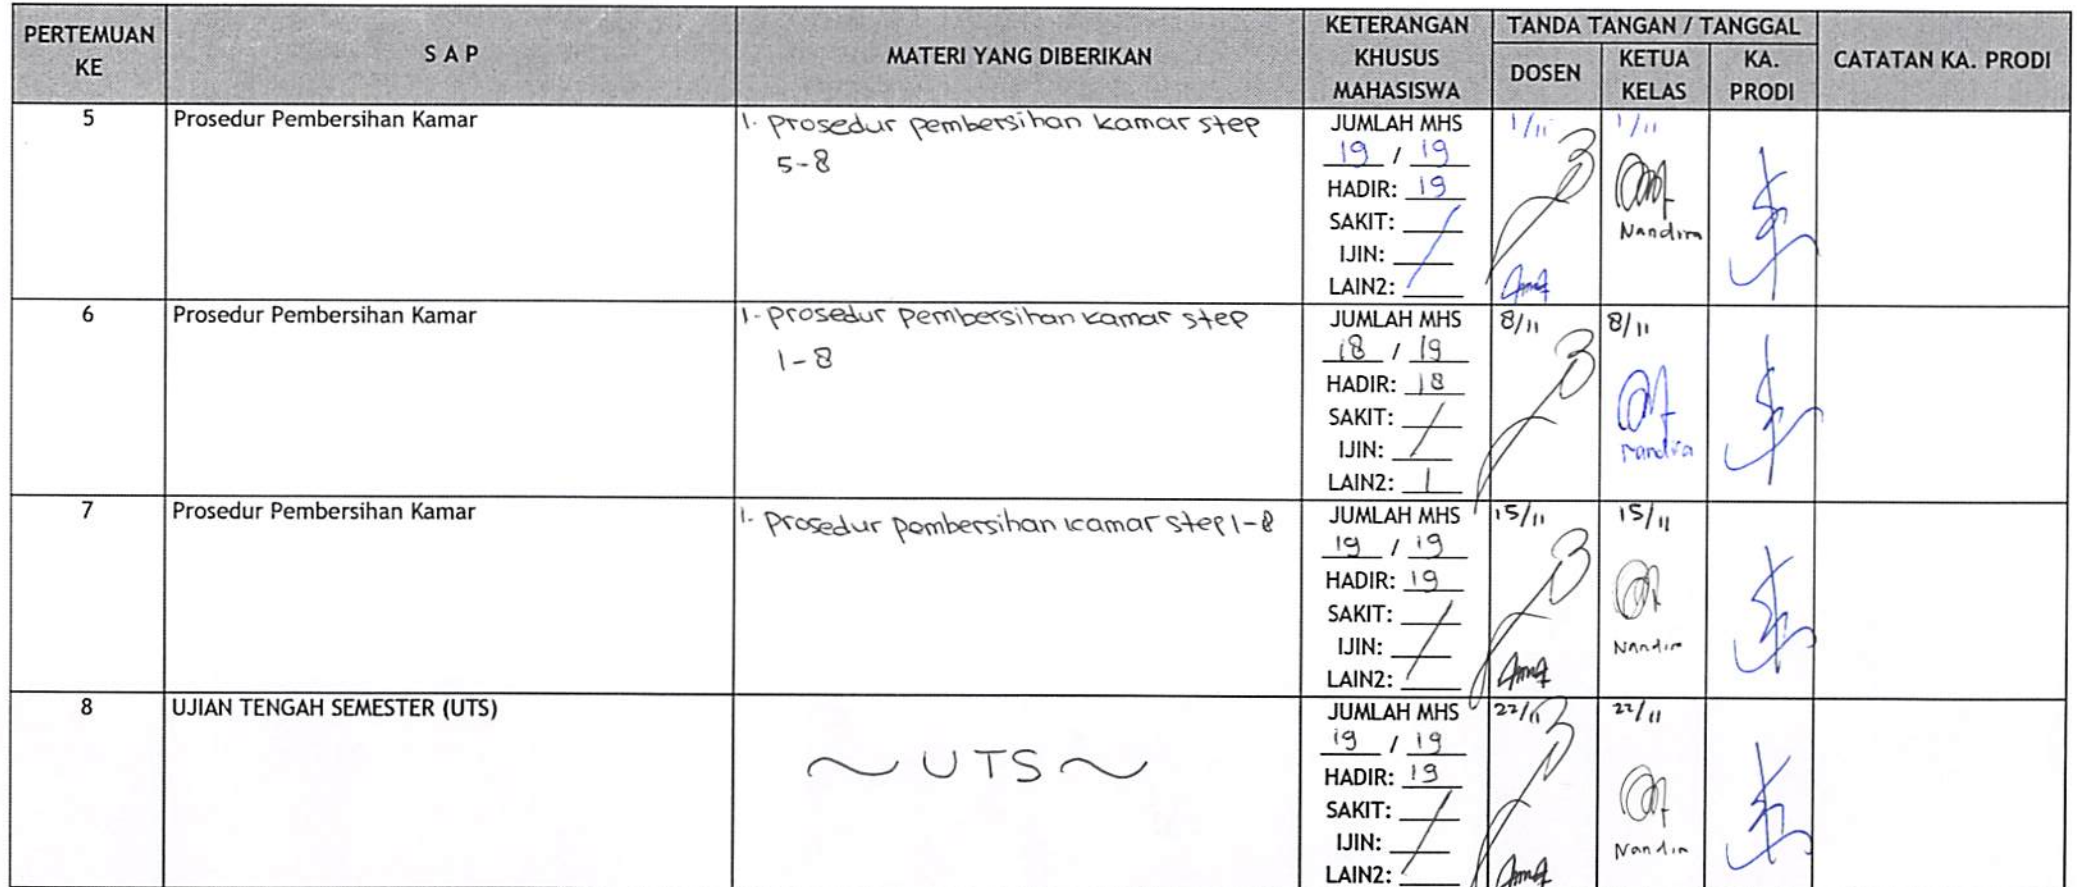 PERTEMUAN KE
S A P
MATERI YANG DIBERIKAN
KETERANGAN KHUSUS MAHASISWA
TANDA TANGAN / TANGGAL
DOSEN
KETUA KELAS
KA. PRODI
CATATAN KA. PRODI
5
Prosedur Pembersihan Kamar
1. prosedur pembersihan kamar step
5-8
JUMLAH MHS
19 / 19
HADIR: 19
SAKIT:
IJIN:
LAIN2:
1/11
1/11
Nandira
6
Prosedur Pembersihan Kamar
1. prosedur pembersihan kamar step
1-8
JUMLAH MHS
18 / 19
HADIR: 18
SAKIT:
IJIN:
LAIN2: 1
8/11
8/11
Nandira
7
Prosedur Pembersihan Kamar
1. prosedur pembersihan kamar step 1-8
JUMLAH MHS
19 / 19
HADIR: 19
SAKIT:
IJIN:
LAIN2:
15/11
15/11
Nandira
8
UJIAN TENGAH SEMESTER (UTS)
~ UTS ~
JUMLAH MHS
19 / 19
HADIR: 19
SAKIT:
IJIN:
LAIN2:
22/11
22/11
Nandira